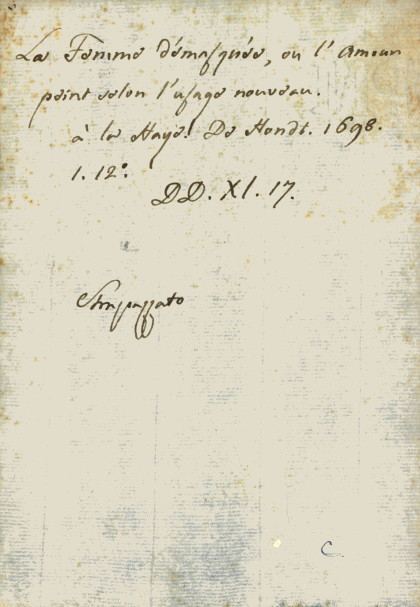 La Femme démasquée, ou l'Amour
peint selon l'usage nouveau.
à la Haye. De Hondt. 1698.
1. 12°.
DD. XI. 17.
Strapazzato
C